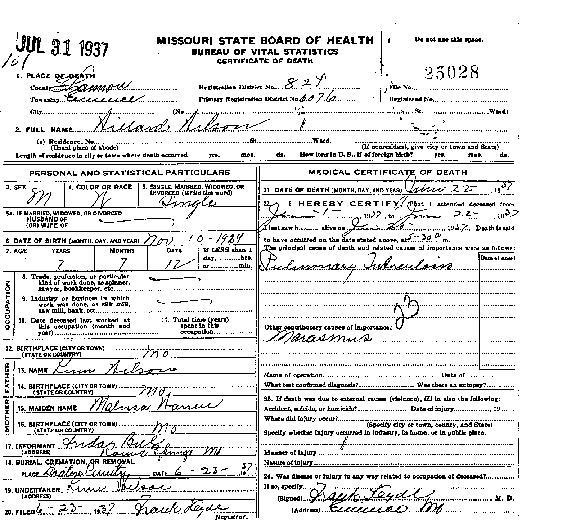 JUL 31 1937
MISSOURI STATE BOARD OF HEALTH
BUREAU OF VITAL STATISTICS
CERTIFICATE OF DEATH
Do not use this space.
25028
1. PLACE OF DEATH
County Shannon Registration District No. 824 File No.
Township Eminence Primary Registration District No. 6076 Registered No.
City (No. St. Ward)
2. FULL NAME Willard
(a) Residence. No. St. Ward.
(Usual place of abode) (If nonresident, give city or town and State)
Length of residence in city or town where death occurred yrs. mos. ds. How long in U. S., if of foreign birth? yrs. mos. ds.
PERSONAL AND STATISTICAL PARTICULARS
3. SEX M
4. COLOR OR RACE W
5. SINGLE, MARRIED, WIDOWED, OR DIVORCED (write the word) Single
5a. IF MARRIED, WIDOWED, OR DIVORCED HUSBAND OF (OR) WIFE OF
6. DATE OF BIRTH (MONTH, DAY, AND YEAR) Nov 10-1929
7. AGE YEARS 7 MONTHS 7 DAYS 12 If LESS than 1 day, hrs. or min.
OCCUPATION
8. Trade, profession, or particular kind of work done, as spinner, sawyer, bookkeeper, etc.
9. Industry or business in which work was done, as silk mill, saw mill, bank, etc.
10. Date deceased last worked at this occupation (month and year)
11. Total time (years) spent in this occupation
12. BIRTHPLACE (CITY OR TOWN) (STATE OR COUNTRY) Mo
FATHER
13. NAME
14. BIRTHPLACE (CITY OR TOWN) (STATE OR COUNTRY) Mo.
MOTHER
15. MAIDEN NAME Warren
16. BIRTHPLACE (CITY OR TOWN) (STATE OR COUNTRY) Mo
17. INFORMANT (ADDRESS) Mo
18. BURIAL, CREMATION, OR REMOVAL
PLACE DATE 6-23- 1937
19. UNDERTAKER (ADDRESS)
20. FILED 6-23- 1937 Frank Registrar
MEDICAL CERTIFICATE OF DEATH
21. DATE OF DEATH (MONTH, DAY, AND YEAR) June 22- 1937
22. I HEREBY CERTIFY, That I attended deceased from
1937 to June 22- 1937
I last saw alive on 1937. Death is said
to have occurred on the date stated above, at m.
The principal cause of death and related causes of importance were as follows:
Date of onset
Pulmonary Tuberculosis
23
Other contributory causes of importance:
Marasmus
Name of operation Date of
What test confirmed diagnosis? Was there an autopsy?
23. If death was due to external causes (violence), fill in also the following:
Accident, suicide, or homicide? Date of injury 19
Where did injury occur?
(Specify city or town, county, and State)
Specify whether injury occurred in industry, in home, or in public place.
Manner of injury
Nature of injury
24. Was disease or injury in any way related to occupation of deceased?
If so, specify
(Signed) Frank M. D.
(Address) Eminence Mo